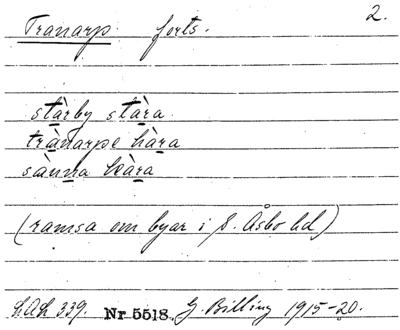 Tranarp. forts. 2.
stàrby stàra
trànarpe hàra
sànna bàra
(ramsa om byar i S. Åsbo hd)
LAL 339. Nr 5518. G. Billing 1915-20.